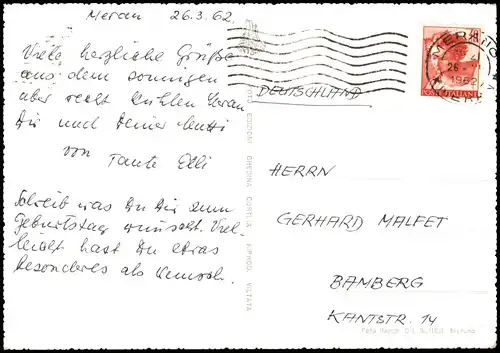 Meran 26.3.62
Viele herzliche Grüße
aus dem sonnigen
aber recht kühlen Meran
Dir und Deiner Mutti
von Tante Elli
Schreib was Du Dir zum
Geburtstag wünscht. Viel-
leicht hast Du etwas
besonderes als Wunsch.
DEUTSCHLAND
MERANO
26
1962
POSTE ITALIANE
HERRN
GERHARD MALFET
BAMBERG
KANTSTR. 14
EDIZIONI GHEDINA CORTINA RIPROD. VIETATA
Merano